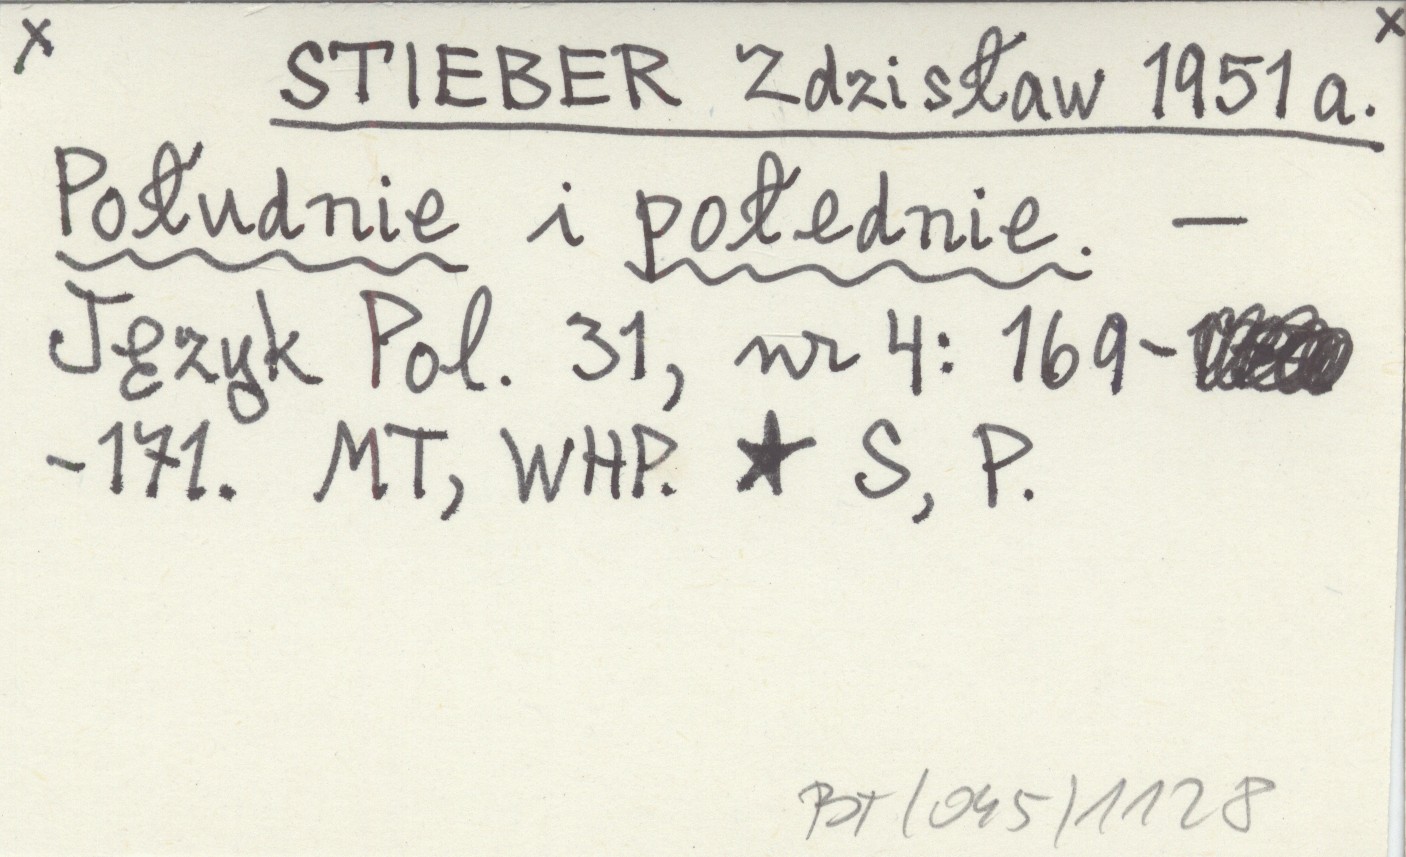 x x
STIEBER Zdzisław 1951a.
Południe i połednie. —
Język Pol. 31, nr 4: 169-
-171. MT, WHP. ★ S, P.
BT/045/1128